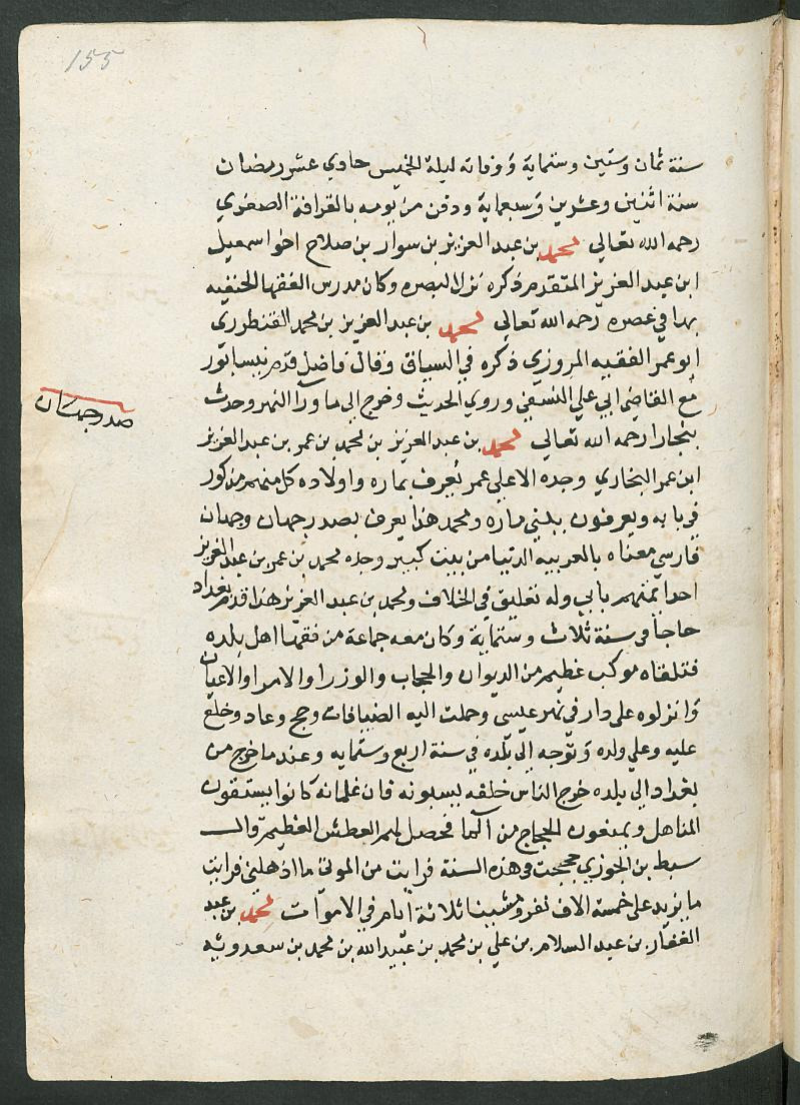 155
سنة ثمان وستين وستماية ووفاته ليلة الخميس حادي عشر رمضان
سنة اثنين وعشرين وسبعماية ودفن من يومه بالقرافة الصغري
رحمه الله تعالي محمد بن عبد العزيز بن سوار بن صلاح اخو اسمعيل
ابن عبد العزيز المتقدم ذكره نزل البصره وكان مدرس الفقها الحنفيه
بها في عصره رحمه الله تعالي محمد بن عبد العزيز بن محمد القنطوري
ابو عمر الفقيه المروزي ذكره في السياق وقال فاضل قدم نيسابور
مع القاضي ابي علي النسفي وروي الحديث وخرج الي ما ورآ النهر وحدث
ببخارا رحمه الله تعالي محمد بن عبد العزيز بن محمد بن عمر بن عبد العزيز
صدر جهان
ابن عمر البخاري وجده الاعلي عمر يعرف بماره واولاده كل منهم مذكور
في بابه ويعرفون ببني ماره ومحمد هذا يعرف بصدر جهان وجهان
فارسي معناه بالعربيه الدنيا من بيت كبير وجده محمد بن عمر بن عبد العزيز
احدا بمنهم ياتي وله تعليق في الخلاف ومحمد بن عبد العزيز هذا قدم بغداد
حاجا في سنة ثلاث وستماية وكان معه جماعة من فقها اهل بلده
فتلقاه موكب عظيم من الديوان والحجاب والوزرا والامرا والاعيان
وانزلوه علي دار في نهر عيسي وحملت اليه الضيافات وحج وعاد وخلع
عليه وعلي ولده وتوجه الي بلده في سنة اربع وستمايه وعند ما خرج من
بغداد الي بلده خرج الناس خلفه يسبونه فان غلمانه كانوا يستقون
المناهل ويمنعون الحجاج من آلما فحصل لهم العطش العظيم وقال
سبط بن الجوزي حججت في هذه السنة فرايت من الموتي ما اذهلني فرايت
ما يزيد علي خمسة الاف نفر ومشينا ثلاثة ايام في الاموات محمد بن عبد
الغفار بن عبد السلام بن علي بن محمد بن عبيد الله بن محمد بن سعدويه